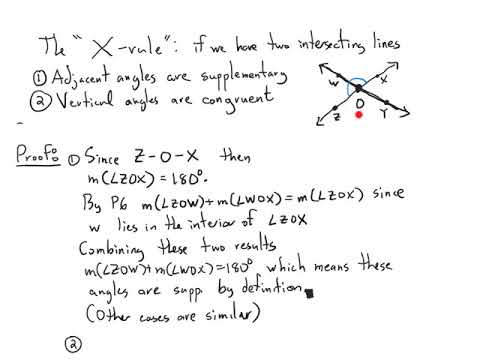 The "X-rule": if we have two intersecting lines
① Adjacent angles are supplementary
② Vertical angles are congruent
W X
O
Z Y
Proof: ① Since Z-O-X then
m(∠ZOX) = 180°.
By P6 m(∠ZOW)+m(∠WOX) = m(∠ZOX) since
W lies in the interior of ∠ZOX
Combining these two results
m(∠ZOW)+m(∠WOX)=180° which means these
angles are supp. by definition.
(Other cases are similar)
②